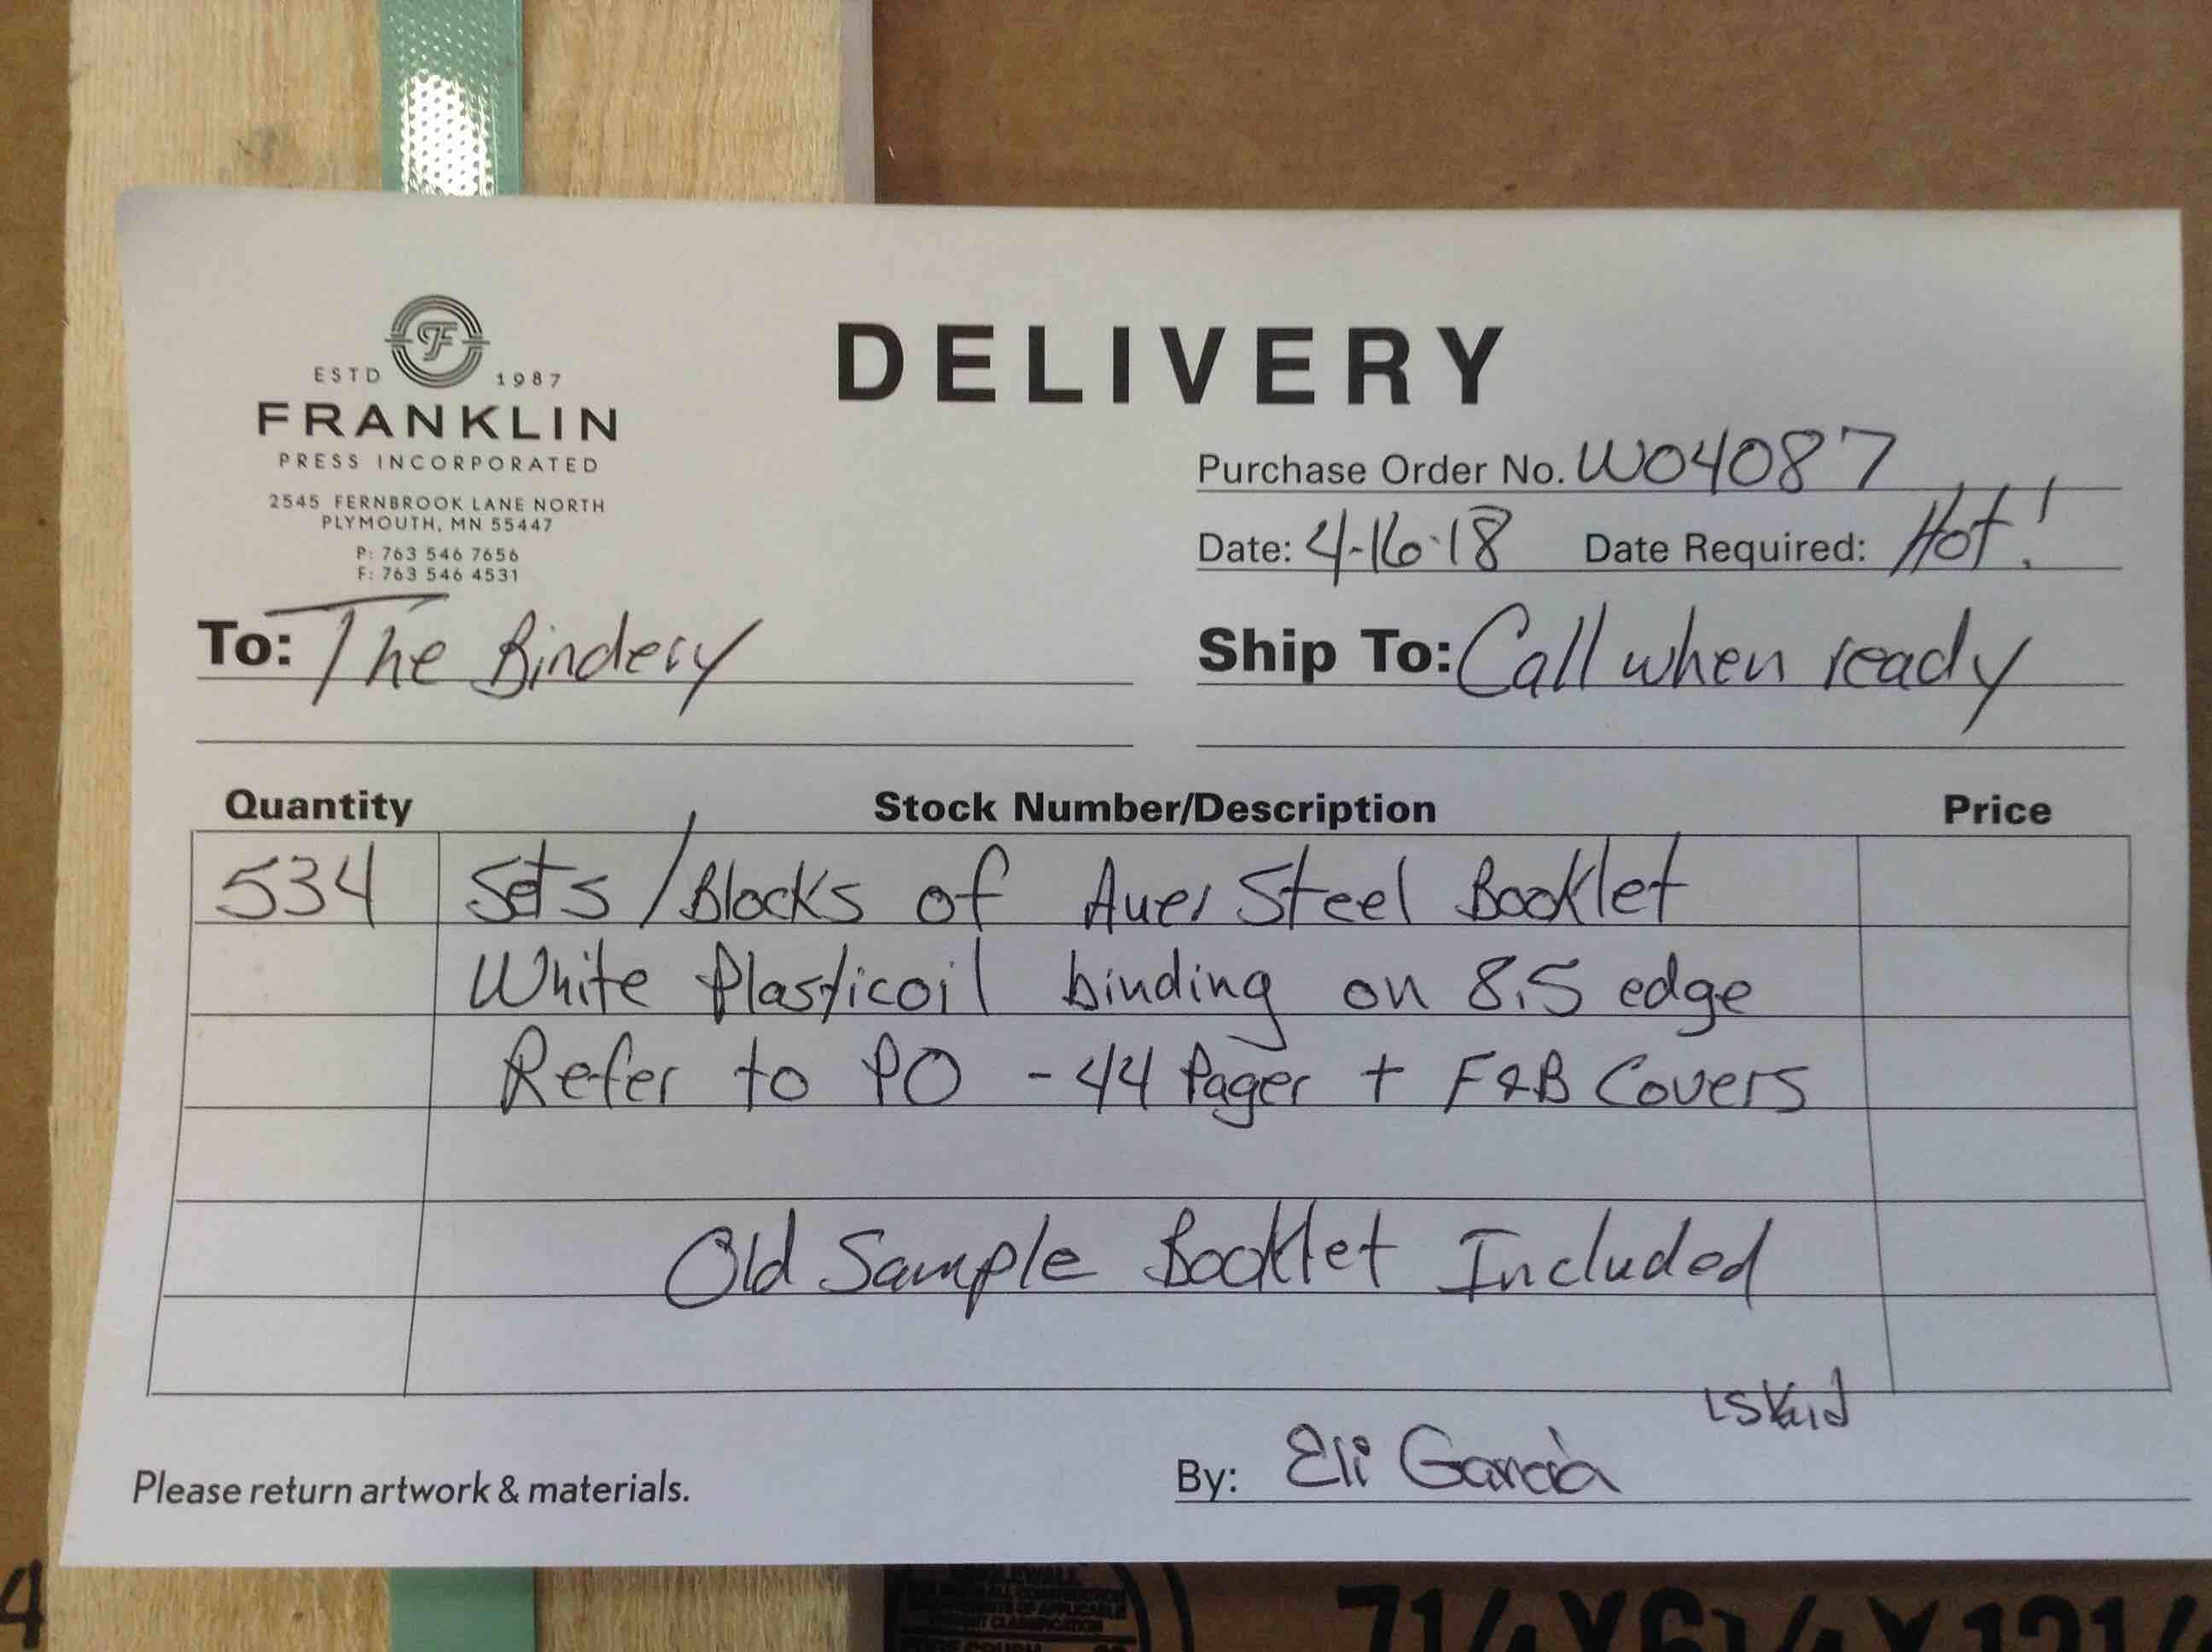 DELIVERY
F
ESTD 1987
FRANKLIN
PRESS INCORPORATED
2545 FERNBROOK LANE NORTH
PLYMOUTH, MN 55447
P: 763 546 7656
F: 763 546 4531
Purchase Order No. WO4087
Date: 4-16-18 Date Required: Hot!
To: The Bindery
Ship To: Call when ready
Quantity Stock Number/Description Price
534 Sets/Blocks of Auer Steel Booklet
White Plasticoil binding on 8.5 edge
Refer to PO - 44 Pager + F&B Covers
Old Sample Booklet Included
1 Skid
Please return artwork & materials. By: Eli Garcià
4